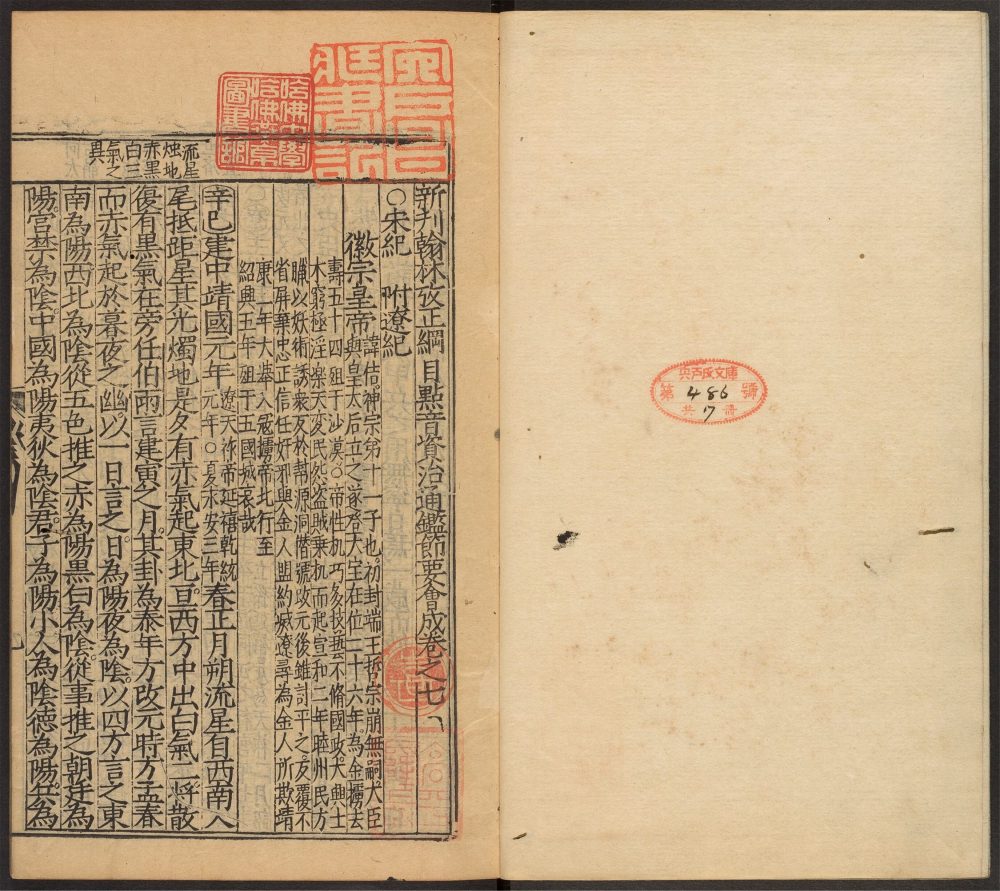 新刊翰林攷正綱目點音資治通鑑節要會成卷之七
○宋紀 附遼紀
徽宗皇帝
諱佶神宗第十一子也初封端王哲宗崩無嗣大臣
與皇太后立之遂登大宝在位二十六年為金擄去
壽五十四殂于沙漠○帝性机巧多技藝不脩國政大興土
木窮極淫樂天変民怨盗賊乗机而起宣和二年睦州民方
臘以妖術誘衆反於幇源洞僭號改元後雖討平之反覆不
省屏棄忠正信任奸邪與金人盟約滅遼尋為金人所欺靖
康二年大舉入寇擄帝北行至
紹興五年殂于五國城哀哉
辛巳建中靖國元年
遼天祚帝延禧乾統
元年○夏末安三年
春正月朔流星自西南入
尾抵距星其光燭地是夕有赤氣起東北亘西方中出白氣二將散
復有黒氣在旁任伯雨言建寅之月其卦為泰年方改元時方孟春
而赤氣起於暮夜之幽以一日言之日為陽夜為陰以四方言之東
南為陽西北為陰從五色推之赤為陽黒白為陰從事推之朝廷為
陽宮禁為陰中國為陽夷狄為陰君子為陽小人為陰德為陽兵為
流星
燭地
赤黒
白三
氣之
異
哈佛大學
哈佛燕京
圖書館
宍戶氏文庫
第 486 號
共 17 冊